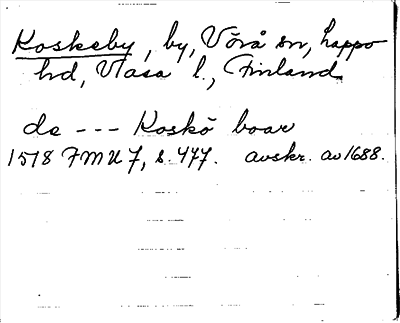 Koskeby, by, Vörå sn, Lappo
hd, Vasa l., Finland
de --- Koskö boar
1518 FMU 7, s. 477. avskr. av 1688.